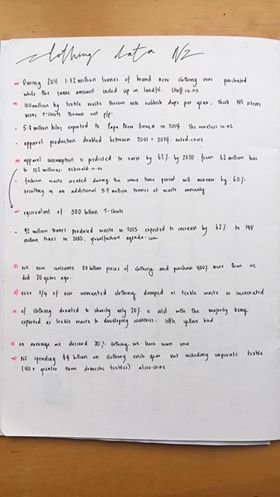 clothing data NZ
- During 2011 1.42 million tonnes of brand new clothing was purchased
while the same amount ended up in landfill. stuff.co.nz
- 100 million kg textile waste thrown into rubbish dups per year, thats
mens t-shirts thrown out p/p
- 5.8 million kilos exported to Papa New Guinea in 2014. the wireless.co.nz
- apparel production doubled between 2011 - 2014.
- apparel consumption is predicted to raise by 62% by 2030 from 62 million tons
to 102 millions. nzherald.co.nz
- fashion waste created during the same time period will increase by 60%
resulting in an additional 57 million tonnes of waste annually
- equivalent of 500 billion T-shirts
- 92 million tonnes produced waste in 2015 expected to increase by 62% to 148
million tones in 2030. globalfashion agenda.com
- we now consume 80 billion pieces of clothing and purchase 400% more than we
did 20 years ago.
- over 3/4 of our unwanted clothing dumped as textile waste or incinerated
- of clothing donated to charity only 20% is sold with the majority being
exported as textile waste to developing countries. little yellow bird
- on average we discard 70% clothing we have worn once
- NZ spending $4 billion on clothing each year not including corporate textile
(40x greater than domestic textiles)